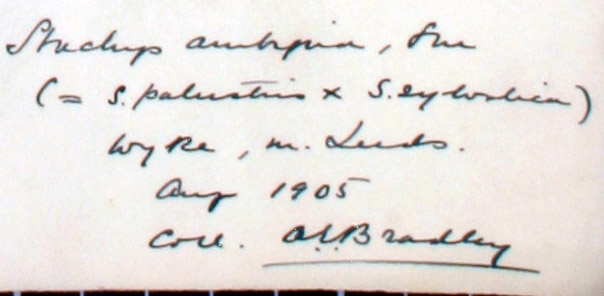 Stachys ambigua, Sm
(= S. palustris x S. sylvatica)
Wyke, n. Leeds.
Aug 1905
Coll. A.E. Bradley